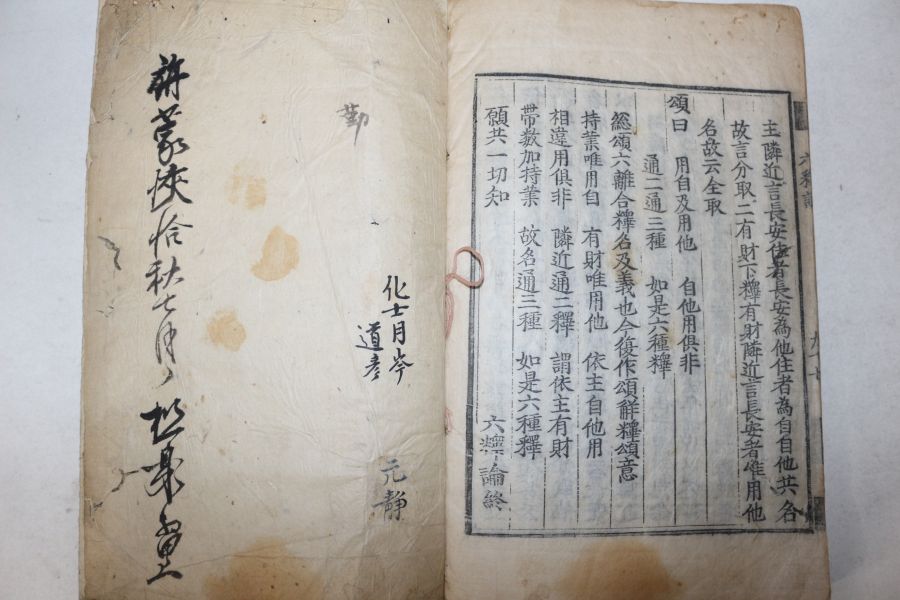 主隣近言長安住者長安為他住者為自自他共名
故言分取二有財下釋有財隣近言長安者唯用他
名故云全取
頌曰 用自及用他 自他用俱非
通二通三種 如是六種釋
総頌六離合釋名及義也今復作頌觧釋頌意
持業唯用自 有財唯用他 依主自他用
相違用俱非 隣近通二釋 謂依主有財
帶數加持業 故名通三種 如是六種釋
願共一切知 六釋論終
勤
化士月岑
道彦
元静
秋七月